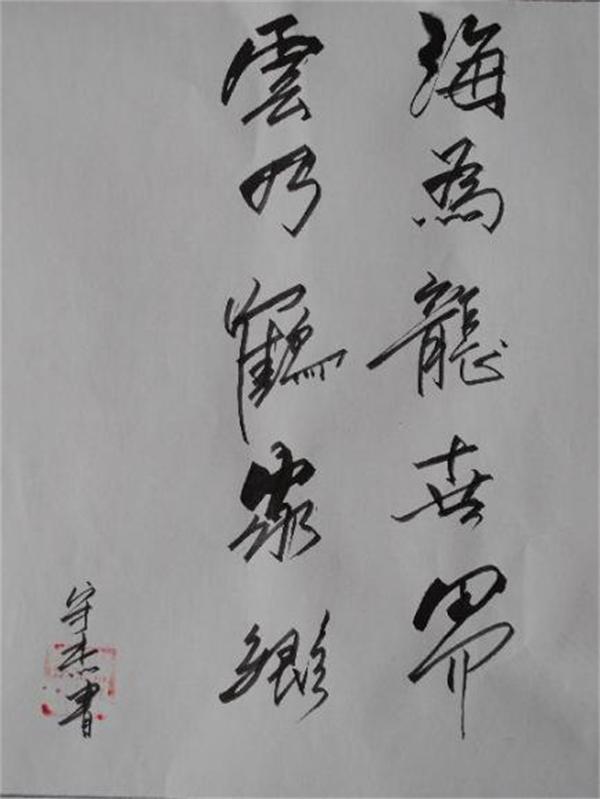 海為龍世界
雲乃鶴家鄉
守杰書